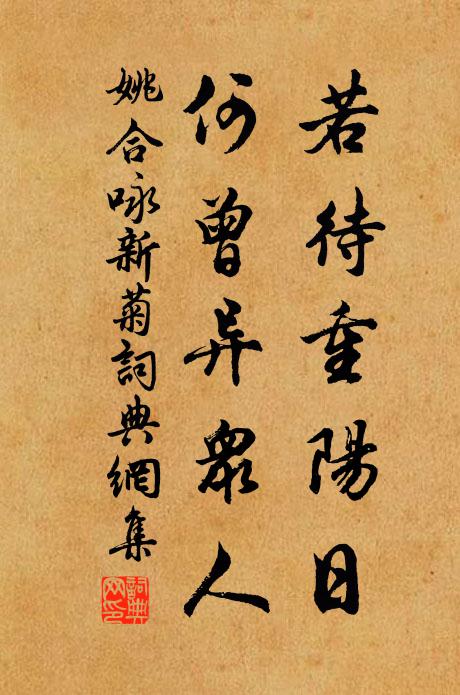 若待重陽日
何曾异眾人
姚合咏新菊詞典網集
詞典
网印